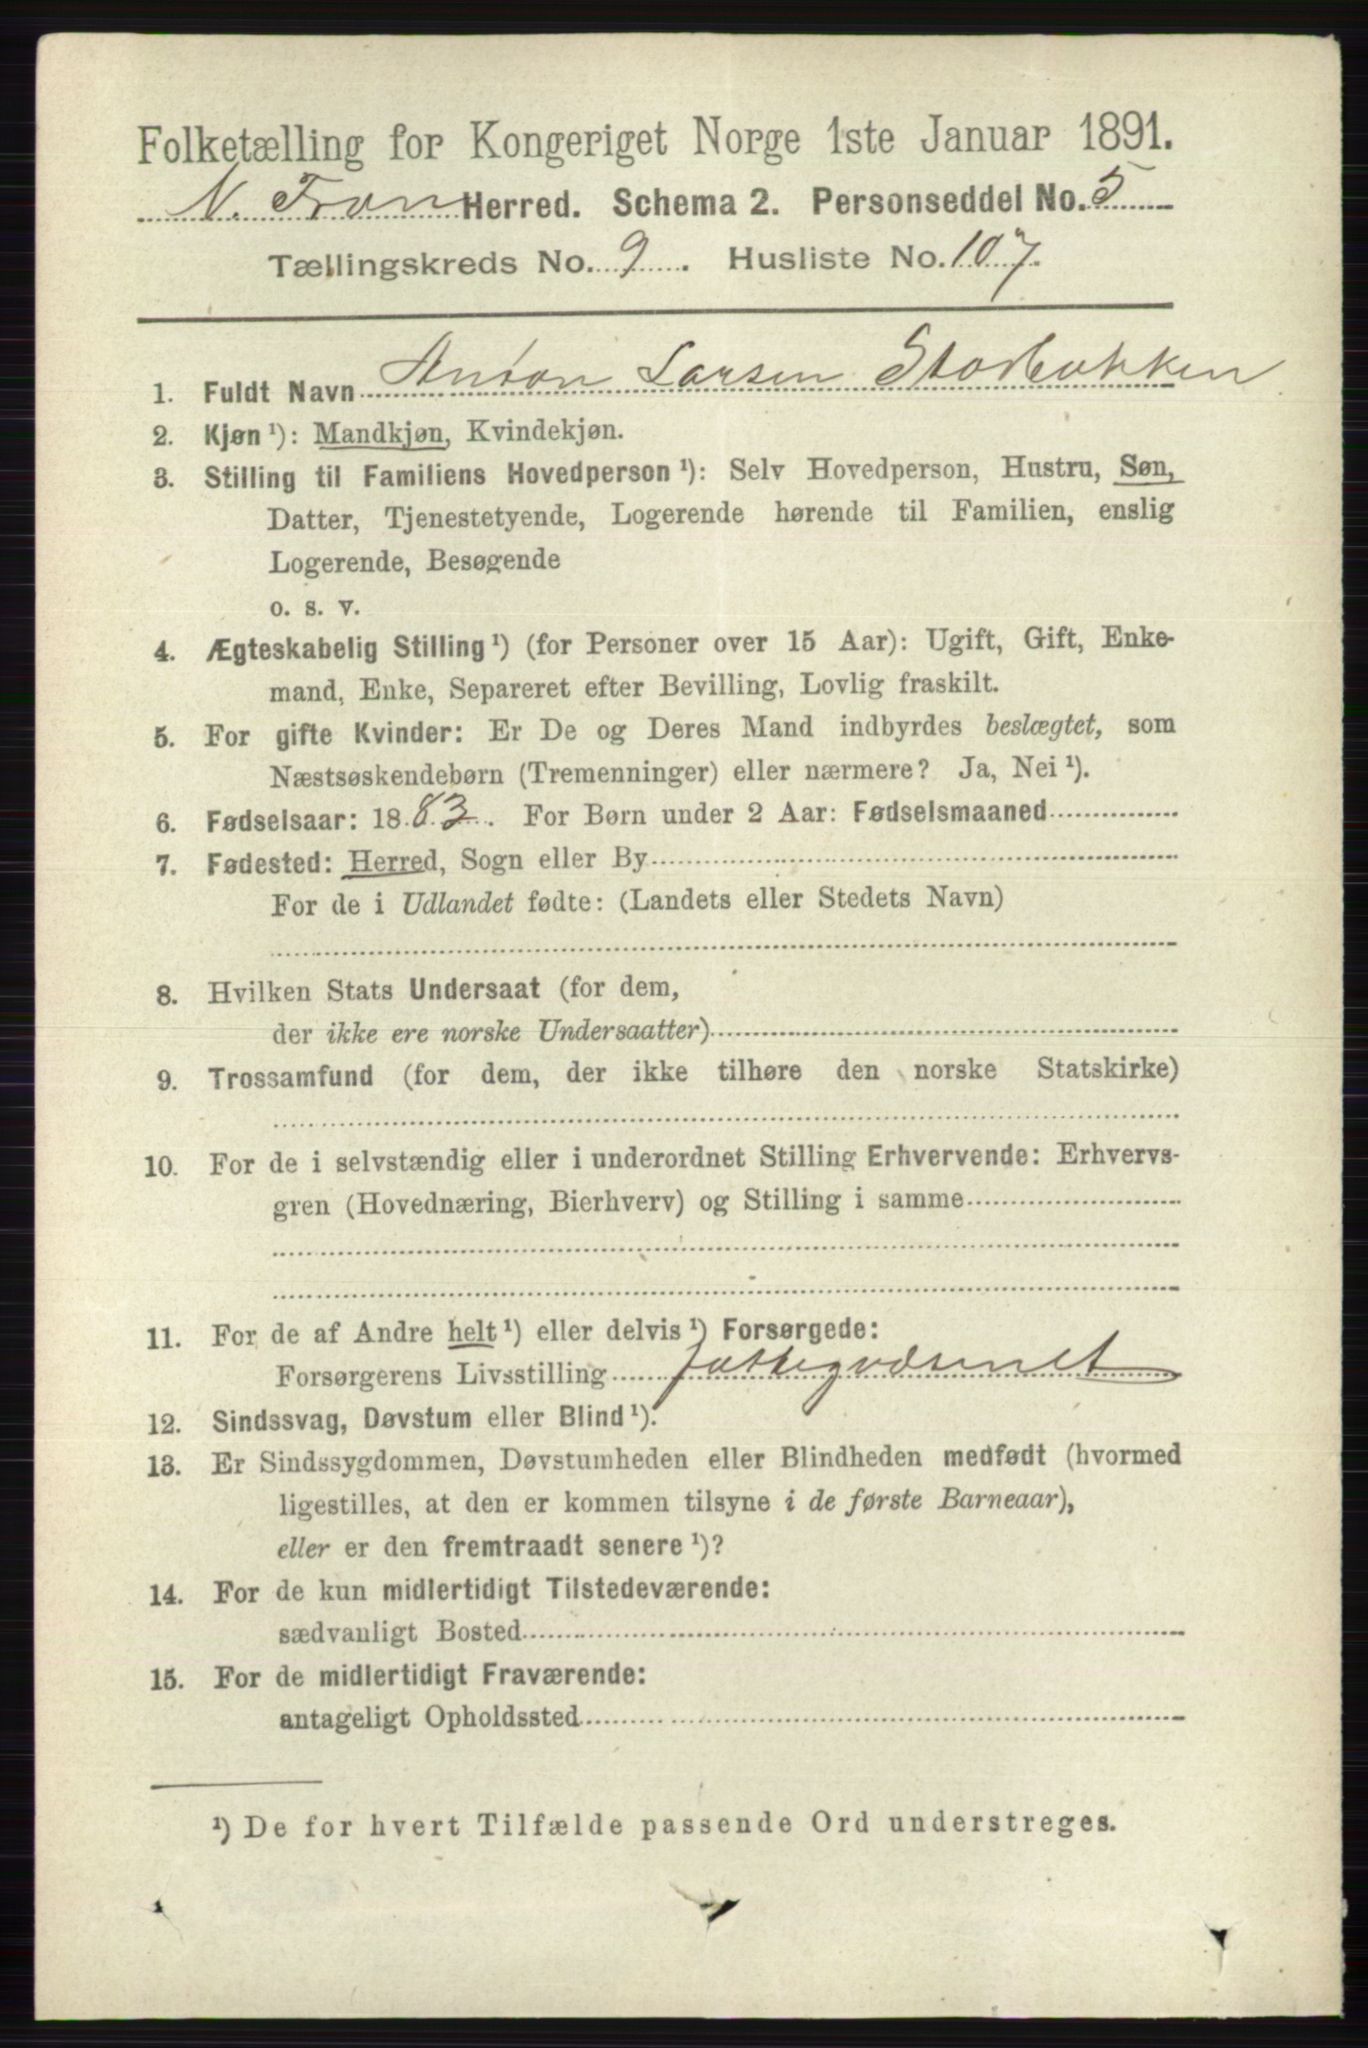 Folketælling for Kongeriget Norge 1ste Januar 1891.
N. Fron Herred. Schema 2. Personseddel No. 5
Tællingskreds No. 9. Husliste No. 107.
1. Fuldt Navn Anton Larsen Storbakken
2. Kjøn ¹): Mandkjøn, Kvindekjøn.
3. Stilling til Familiens Hovedperson ¹): Selv Hovedperson, Hustru, Søn,
Datter, Tjenestetyende, Logerende hørende til Familien, enslig
Logerende, Besøgende
o. s. v.
4. Ægteskabelig Stilling ¹) (for Personer over 15 Aar): Ugift, Gift, Enke-
mand, Enke, Separeret efter Bevilling, Lovlig fraskilt.
5. For gifte Kvinder: Er De og Deres Mand indbyrdes beslægtet, som
Næstsøskendebørn (Tremenninger) eller nærmere? Ja, Nei ¹).
6. Fødselsaar: 1883. For Børn under 2 Aar: Fødselsmaaned
7. Fødested: Herred, Sogn eller By
For de i Udlandet fødte: (Landets eller Stedets Navn)
8. Hvilken Stats Undersaat (for dem,
der ikke ere norske Undersaatter)
9. Trossamfund (for dem, der ikke tilhøre den norske Statskirke)
10. For de i selvstændig eller i underordnet Stilling Erhvervende: Erhvervs-
gren (Hovednæring, Bierhverv) og Stilling i samme
11. For de af Andre helt ¹) eller delvis ¹) Forsørgede:
Forsørgerens Livsstilling Fattigvæsenet
12. Sindssvag, Døvstum eller Blind ¹).
13. Er Sindssygdommen, Døvstumheden eller Blindheden medfødt (hvormed
ligestilles, at den er kommen tilsyne i de første Barneaar),
eller er den fremtraadt senere ¹)?
14. For de kun midlertidigt Tilstedeværende:
sædvanligt Bosted
15. For de midlertidigt Fraværende:
antageligt Opholdssted
¹) De for hvert Tilfælde passende Ord understreges.